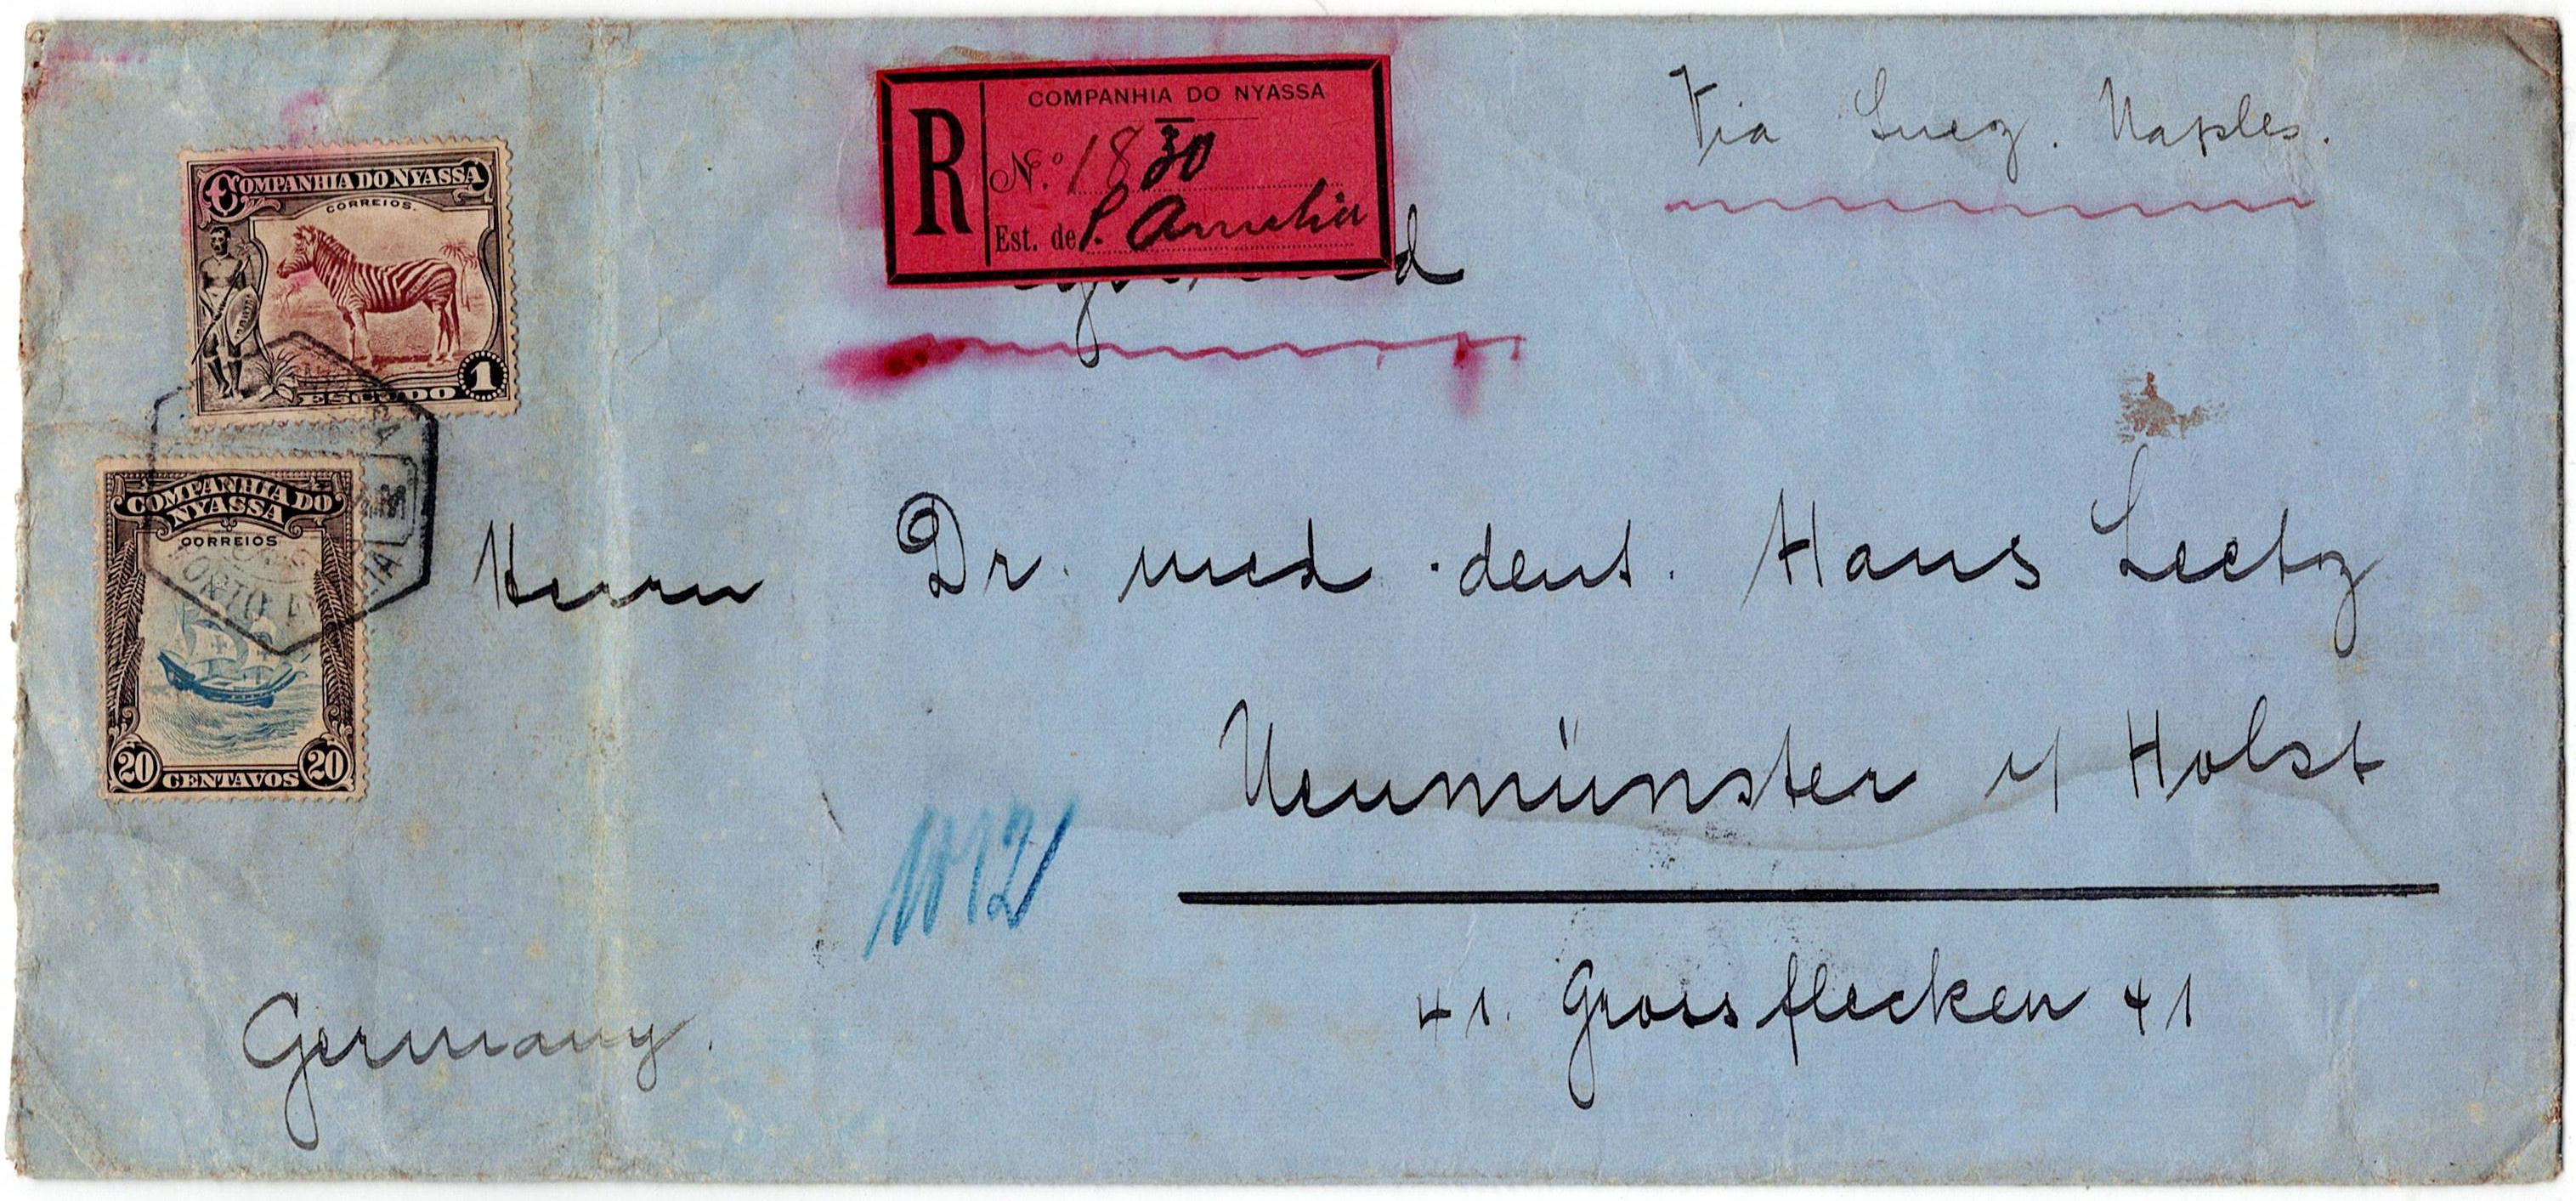 Via Suez. Naples.
COMPANHIA DO NYASSA
R
N.º 1830
Est. de P. Amelia
d
COMPANHIA DO NYASSA
CORREIOS.
1
ESCUDO
COMPANHIA DO
NYASSA
CORREIOS
20 CENTAVOS 20
PORTO AMELIA
Herrn Dr. med. dent. Hans Leetz
Neumünster i/ Holst
41. Grossflecken 41
Germany.